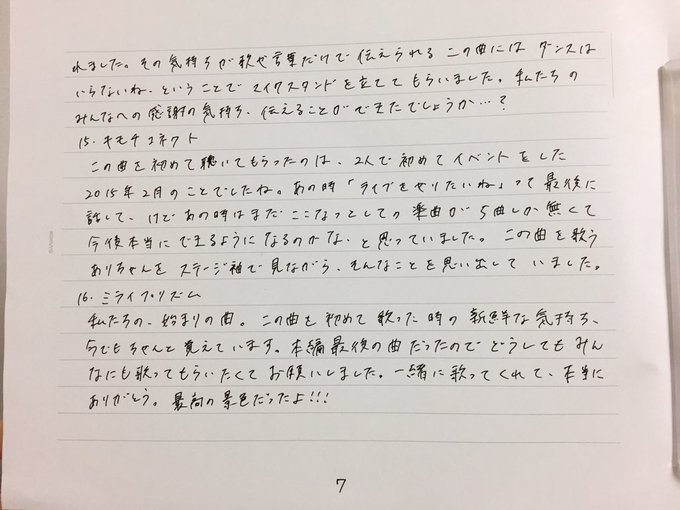 れました。その気持ちが歌や言葉だけで伝えられるこの曲にはダンスは
いらないね、ということでマイクスタンドを立ててもらいました。私たちの
みんなへの感謝の気持ち、伝えることができたでしょうか…?
15. キモチコネクト
この曲を初めて聴いてもらったのは、2人で初めてイベントをした
2015年2月のことでしたね。あの時「ライブをやりたいね」って最後に
話して、けどあの時はまだここなつとしての楽曲が5曲しか無くて
今後本当にできるようになるのかな、と思っていました。この曲を歌う
ありちゃんをステージ袖で見ながら、そんなことを思い出していました。
16. ミライプリズム
私たちの、始まりの曲。この曲を初めて歌った時の新鮮な気持ち、
今でもちゃんと覚えています。本編最後の曲だったのでどうしてもみん
なにも歌ってもらいたくてお願いしました。一緒に歌ってくれて、本当に
ありがとう。最高の景色だったよ!!!
7